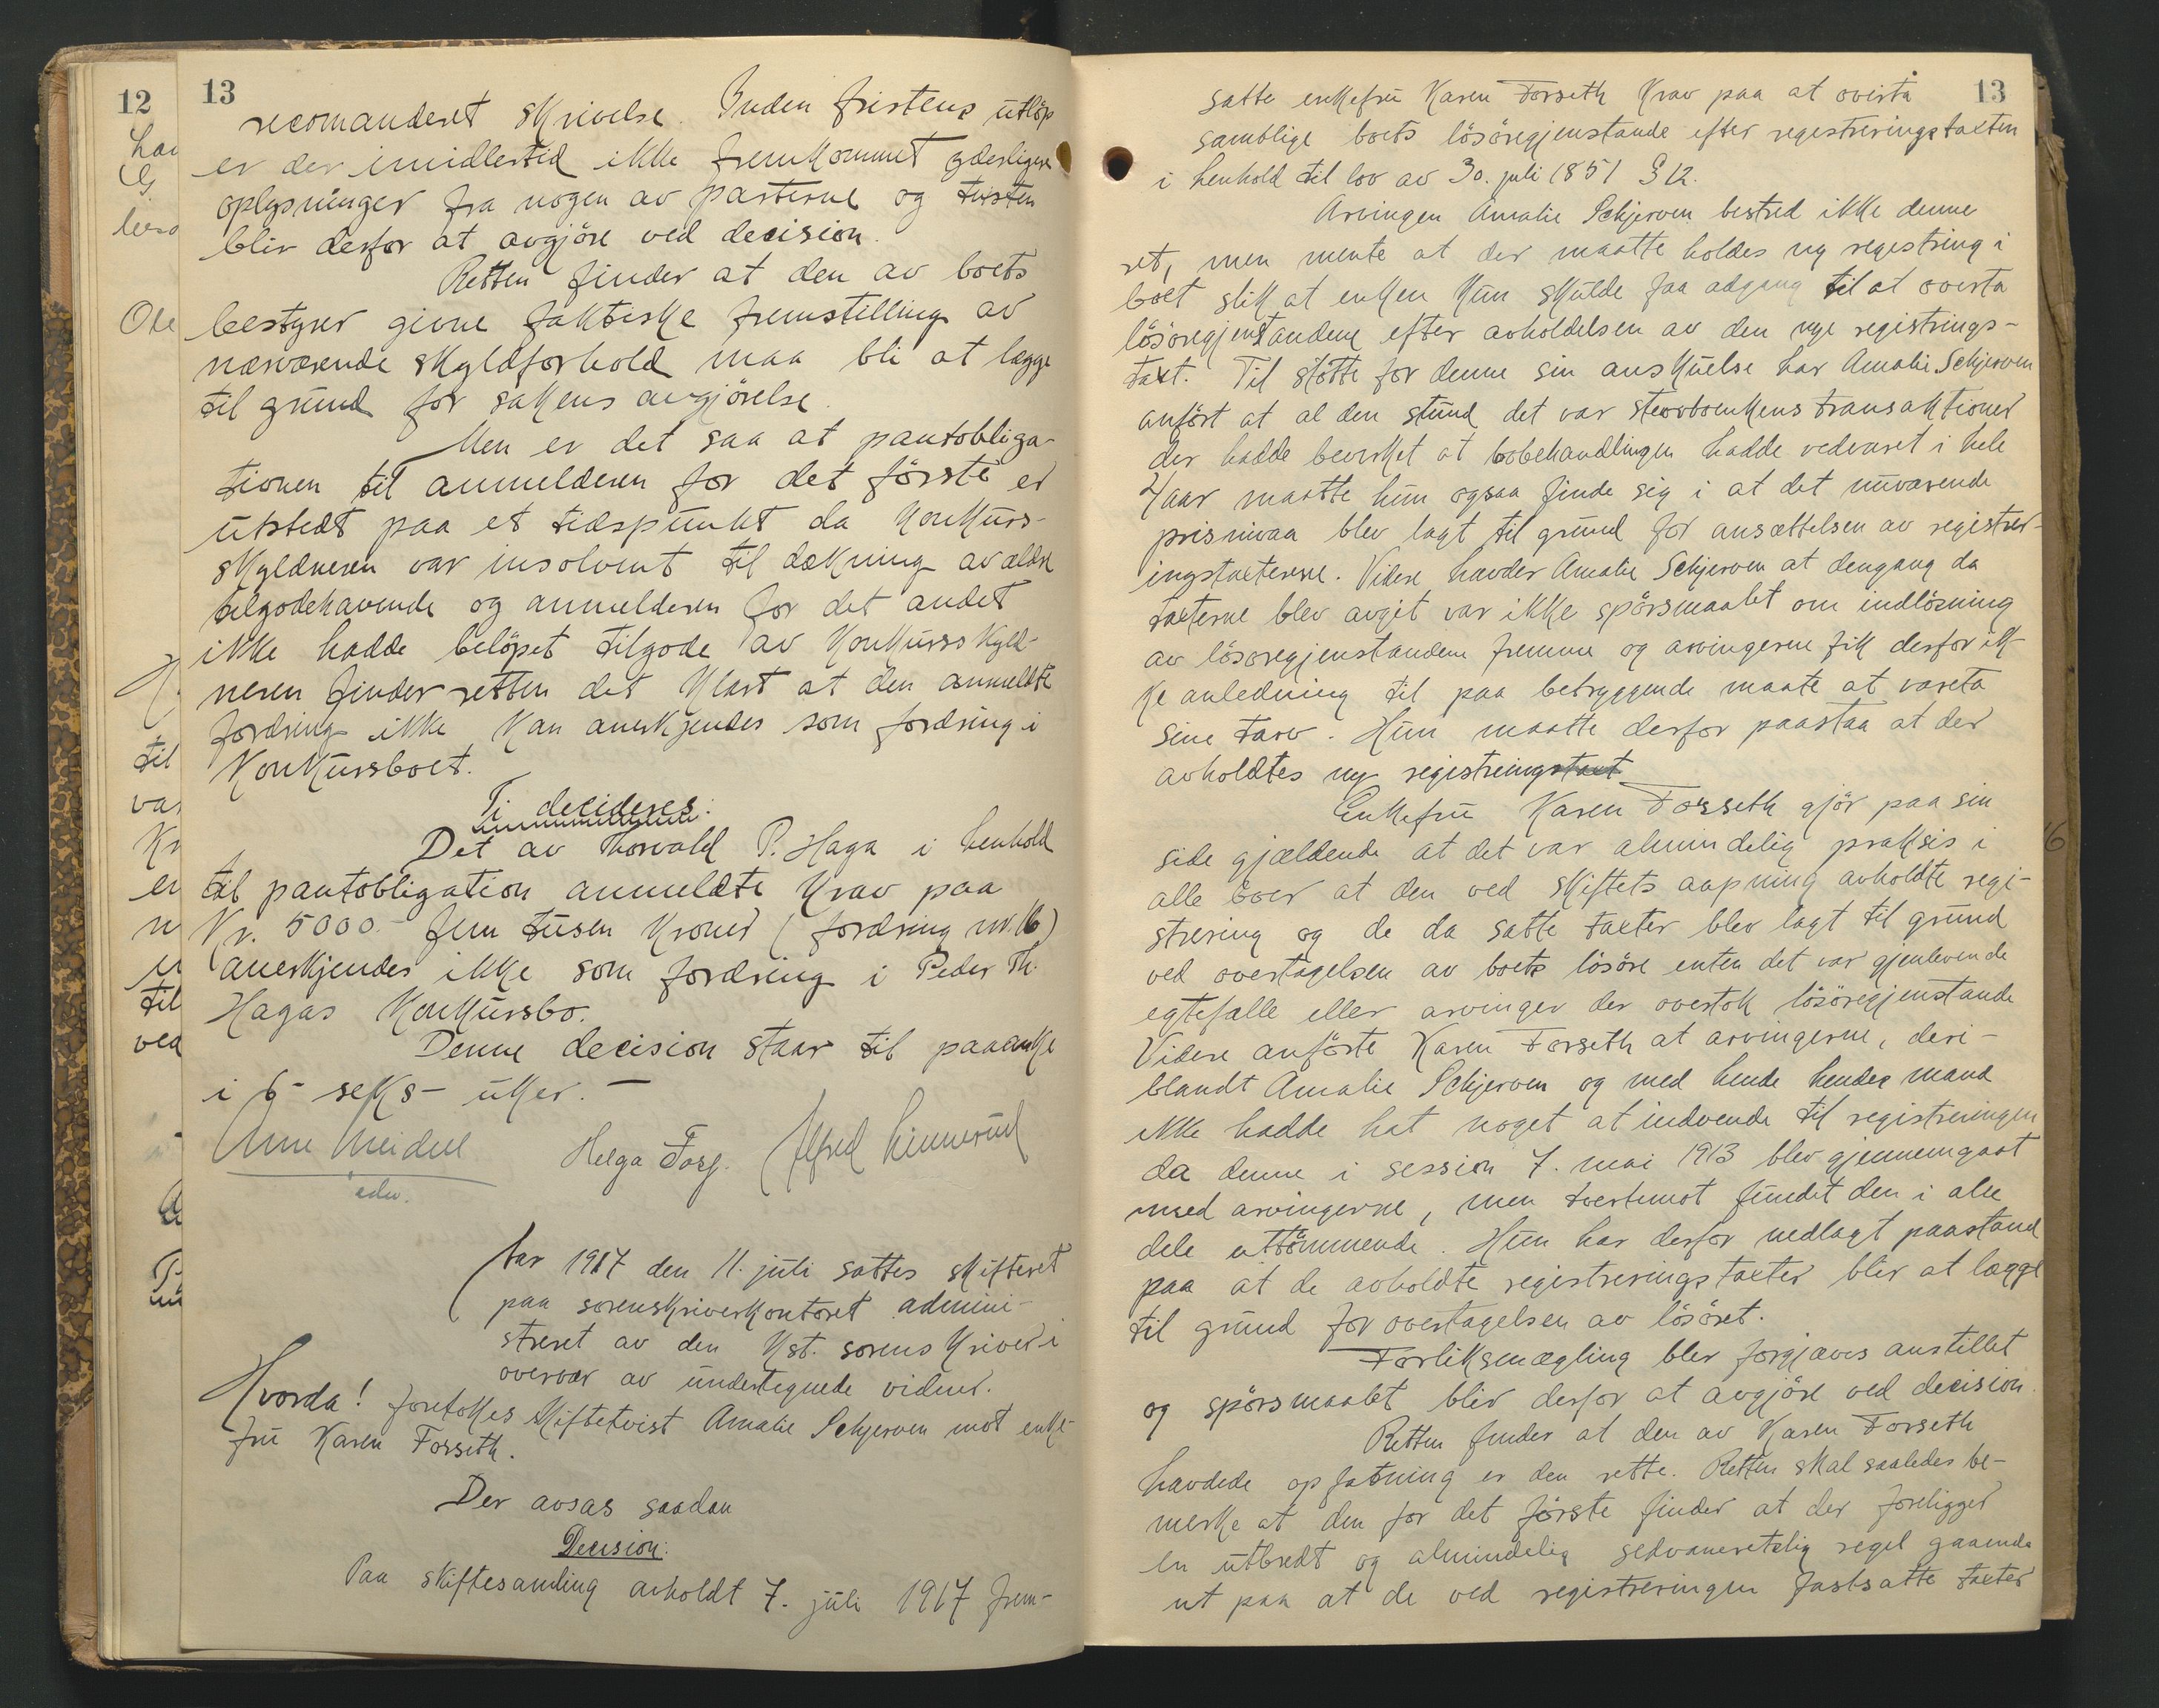 12
13
recomanderet skrivelse. Inden fristens utløp
er der imidlertid ikke fremkommet yderligere
oplysninger fra nogen av parterne og tvisten
blir derfor at avgjöre ved decision.
Retten finder at den av boets
bestyrer givne faktiske fremstilling av
nærværende skyldforhold maa bli at lægge
til grund for sakens avgjörelse.
Men er det saa at pantobliga-
tionen til anmelderen for det förste er
utstedt paa et tidspunkt da konkurs-
skyldneren var insolvent til dækning av ældre
tilgodehavende og anmelderen for det andet
ikke hadde belöpet tilgode av konkursskyld-
neren finder retten det klart at den anmeldte
fordring ikke kan anerkjendes som fordring i
konkursboet.
Ti decideres:
Det av Thorvald P. Haga i henhold
til pantobligation anmeldte krav paa
Kr. 5000.- fem tusen kroner (fordring nr. 16)
anerkjendes ikke som fordring i Peder Th.
Hagas konkursbo.
Denne decision staar til paaanke
i 6 - seks - uker. -
Arne Meidell Helga Forg. Alfred Linnerud
edv.
Aar 1917 den 11. juli sattes skifteret
paa sorenskriverkontoret admini-
streret av den kst. sorenskriver i
overvær av undertegnede vidner.
Hvorda! foretokes skiftetvist Amalie Schjerven mot enke-
fru Karen Forseth.
Der avsas saadan
Decision:
Paa skiftesamling avholdt 7. juli 1917 frem-
13
satte enkefru Karen Forseth krav paa at overta
samtlige boets lösöregjenstande efter registreringstaxten
i henhold til lov av 30. juli 1851 § 12.
Arvingen Amalie Schjerven bestred ikke denne
ret, men mente at der maatte holdes ny regestring i
boet slik at enken kun skulde faa adgang til at overta
lösöregjenstandene efter avholdelsen av den nye registrings-
taxt. Til stötte for denne sin anskuelse har Amalie Schjerven
anfört at al den stund det var stervboenkens transaktioner
der hadde bevirket at bobehandlingen hadde vedvaret i hele
4 aar maatte hun ogsaa finde sig i at det nuværende
prisnivaa blev lagt til grund for ansættelsen av registrer-
ingstaxterne. Videre hævder Amalie Schjerven at dengang da
taxterne blev avgit var ikke spörsmaalet om indlösning
av lösöregjenstandene fremme og arvingerne fik derfor ik-
ke anledning til paa betryggende maate at vareta
sine tarv. Hun maatte derfor paastaa at der
avholdtes ny registreringstaxt
Enkefru Karen Forseth gjör paa sin
side gjældende at det var almindelig praksis i
alle boer at den ved skiftets aapning avholdte regi-
strering og de da satte taxter blev lagt til grund
ved overtagelsen av boets lösöre enten det var gjenlevende
egtefælle eller arvinger der overtok lösöregjenstande
Videre anförte Karen Forseth at arvingerne, deri-
blandt Amalie Schjerven og med hende hendes mand
ikke hadde hat noget at indvende til registreringen
da denne i session 7. mai 1913 blev gjennemgaat
med arvingerne, men tvertimot fundet den i alle
dele uttömmende. Hun har derfor nedlagt paastand
paa at de avholdte registreringstaxter blir at lægge
til grund for overtagelsen av lösöret.
Forliksmægling blev forgjæves anstillet
og spörsmaalet blir derfor at avgjöre ved decision.
Retten finder at den av Karen Forseth
hævdede opfatning er den rette. Retten skal saaledes be-
merke at den for det förste finder at der foreligger
en utbredt og almindelig sedvaneretslig regel gaaende
ut paa at de ved registreringen fastsatte taxter